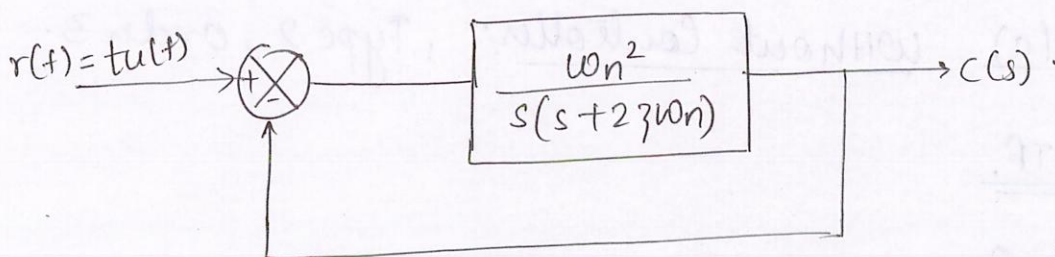 r(t) = tu(t)
+
-
ωn²
s(s+2ζωn)
→ C(s).